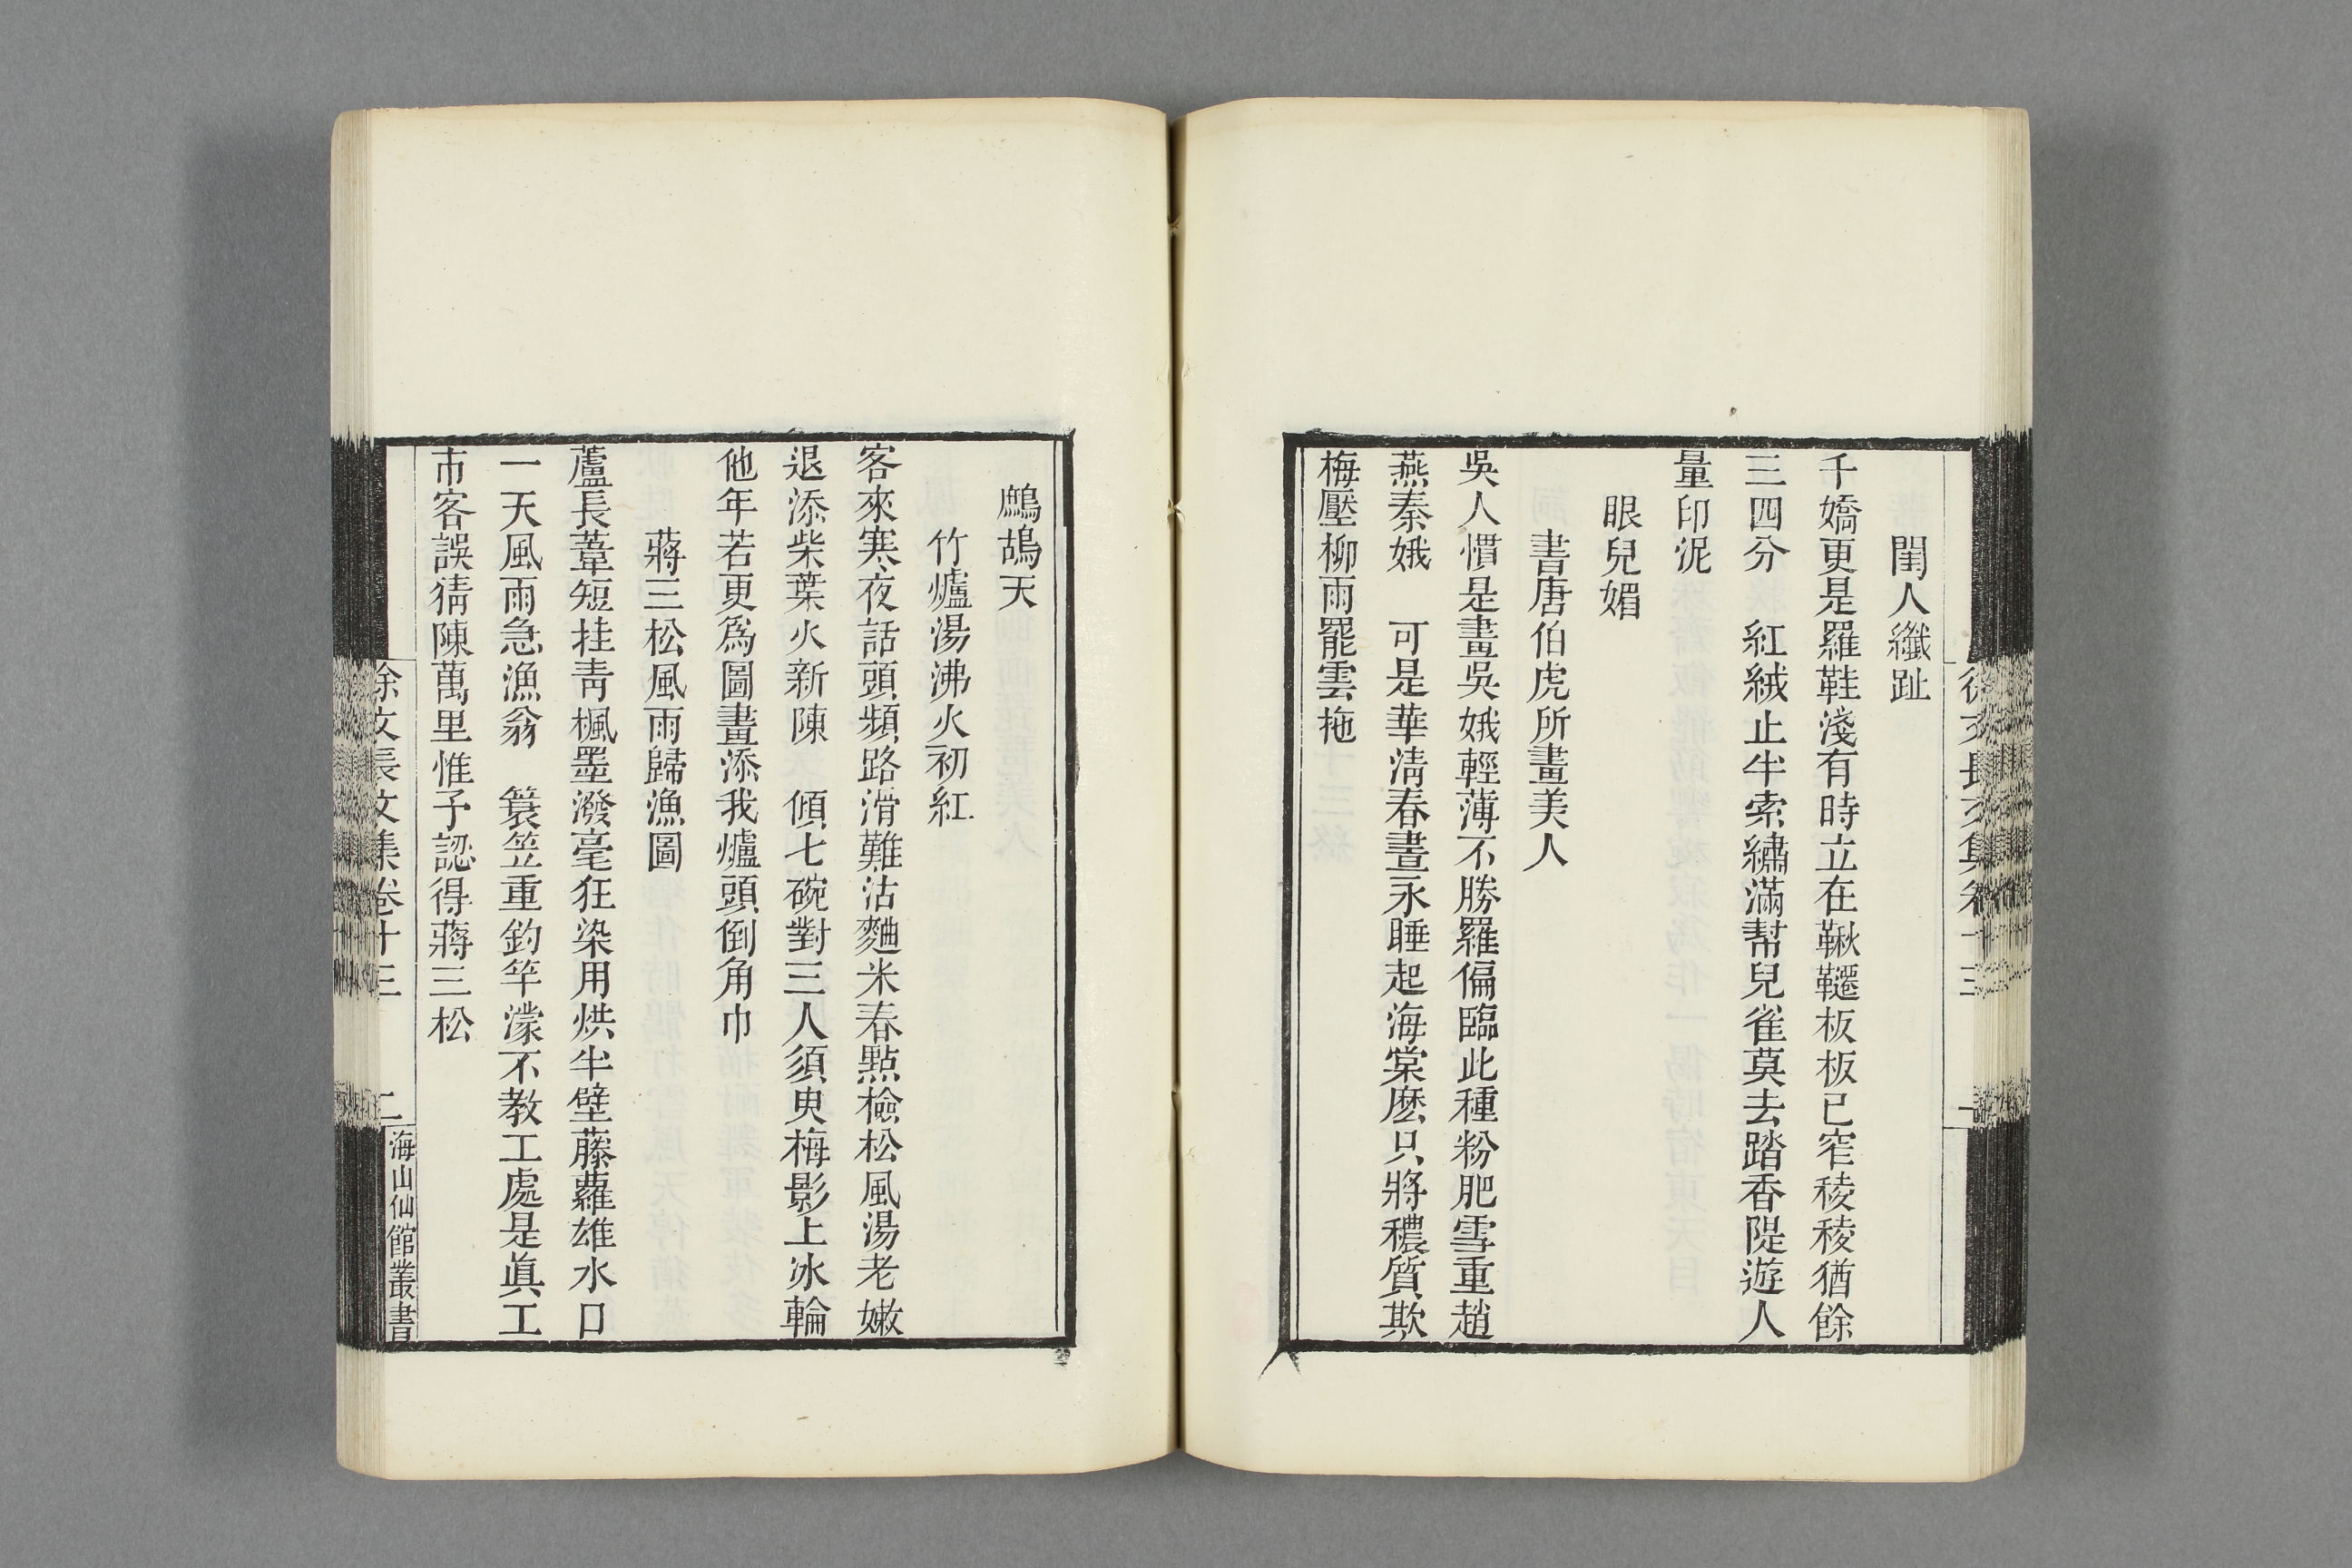 閨人纖趾
千嬌更是羅鞋淺有時立在鞦韆板板已窄稜稜猶餘
三四分　紅絨止半索繡滿幫兒雀莫去踏香隄遊人
量印泥
眼兒媚
書唐伯虎所畫美人
吳人慣是畫吳娥輕薄不勝羅偏臨此種粉肥雪重趙
燕秦娥　可是華淸春晝永睡起海棠麽只將穠質欺
梅壓柳雨罷雲拖
鷓鴣天
竹爐湯沸火初紅
客來寒夜話頭頻路滑難沽麯米春點檢松風湯老嫩
退添柴葉火新陳　傾七碗對三人須臾梅影上冰輪
他年若更爲圖畫添我爐頭倒角巾
蔣三松風雨歸漁圖
蘆長葦短挂靑楓墨潑毫狂染用烘半壁藤蘿雄水口
一天風雨急漁翁　簑笠重釣竿濛不教工處是眞工
市客誤猜陳萬里惟予認得蔣三松
徐文長文集卷十三
二
海山仙館叢書